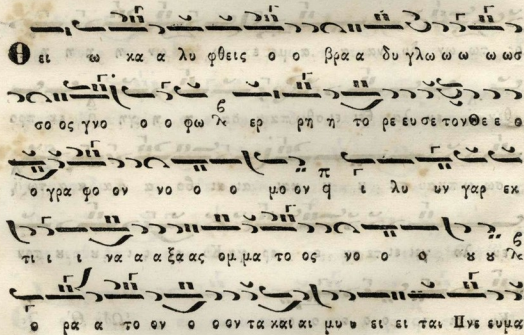 Θει ω κα α λυ φθεις ο ο βρα α δυ γλω ω ω ω ωσ
σο ος γνο ο ο φω ερ ρη η το ρε ευ σε τον Θε ε ο
ο γρα φο ον νο ο ο μο ον ι λυ υν γαρ εκ
τι ι ι να α α ξα ας ομ μα το ος νο ο
ο ρα α το ον ο ον τα και αι μυ υ ει ται Πνευμα